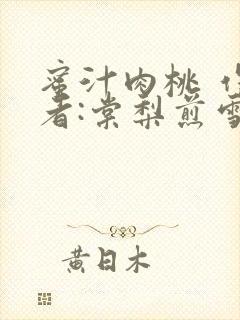 蜜汁肉桃 作
者:棠梨煎雪
黄日木